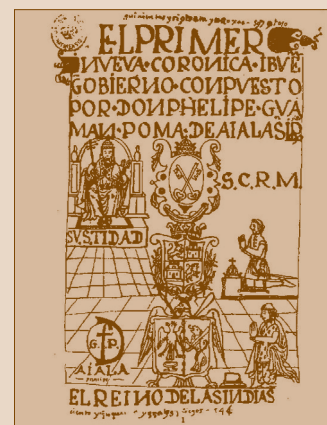 EL PRIMER
NVEVA·CORONICA·IBVE
GOBIERNO·CONPVESTO
POR·DON PHELIPE·GVA
MAN·POMA·DE AIALA S̃IR̃
S.C.R.M.
SVSTIDAD
G. P.
AIALA
EL REINO DE LAS INDIAS